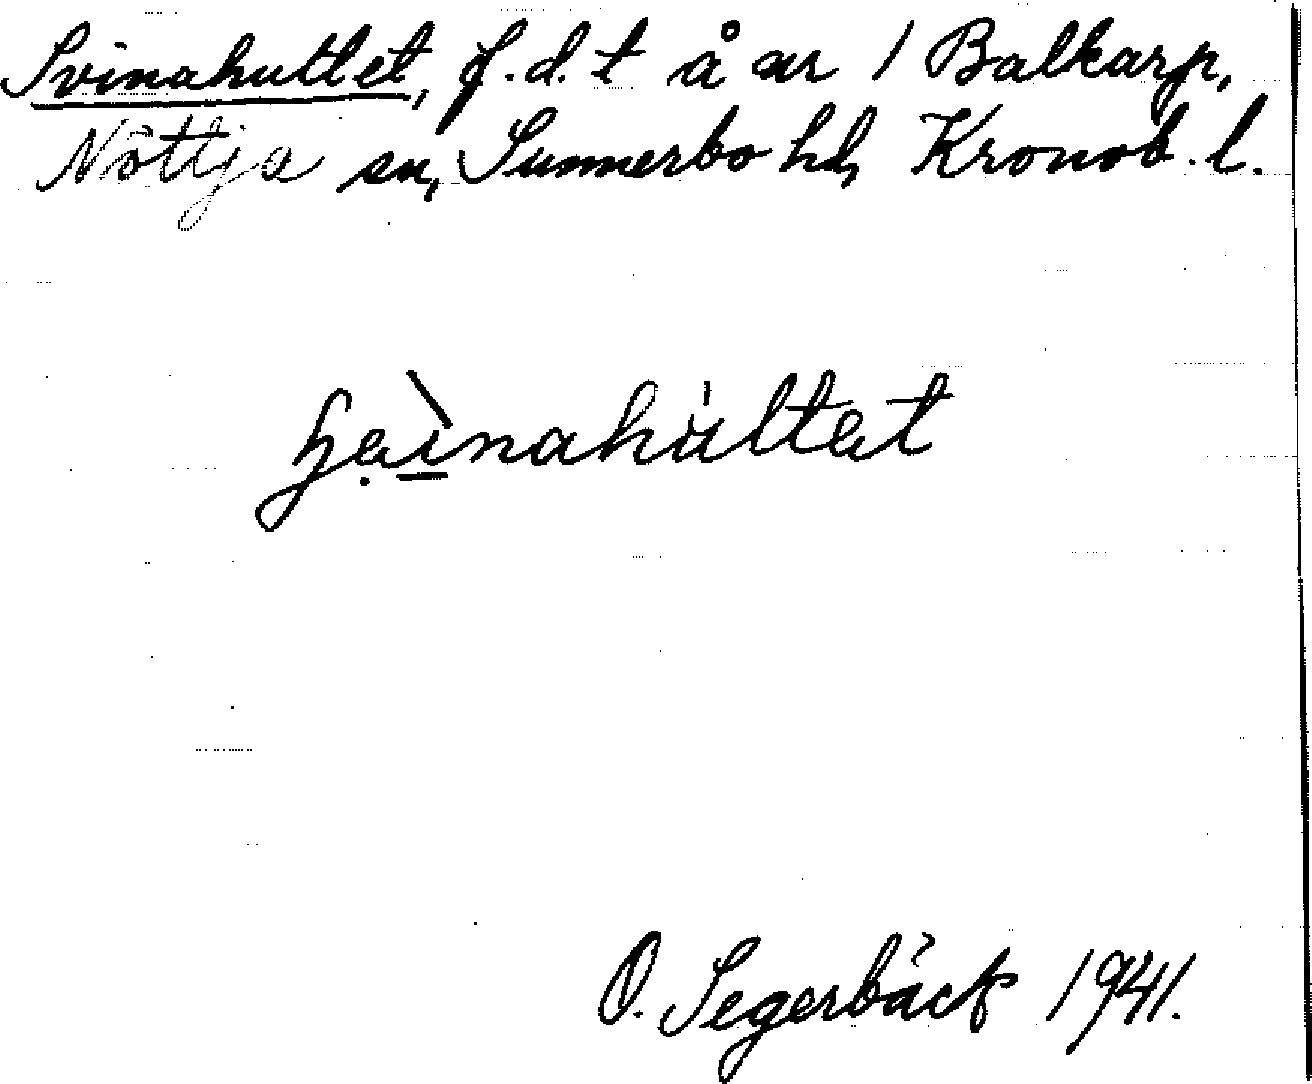 Svinahultet, f.d. t å ar 1 Balkarp,
Nöttja sn, Sunnerbo hd, Kronob. l.
O. Segerbäck 1941.